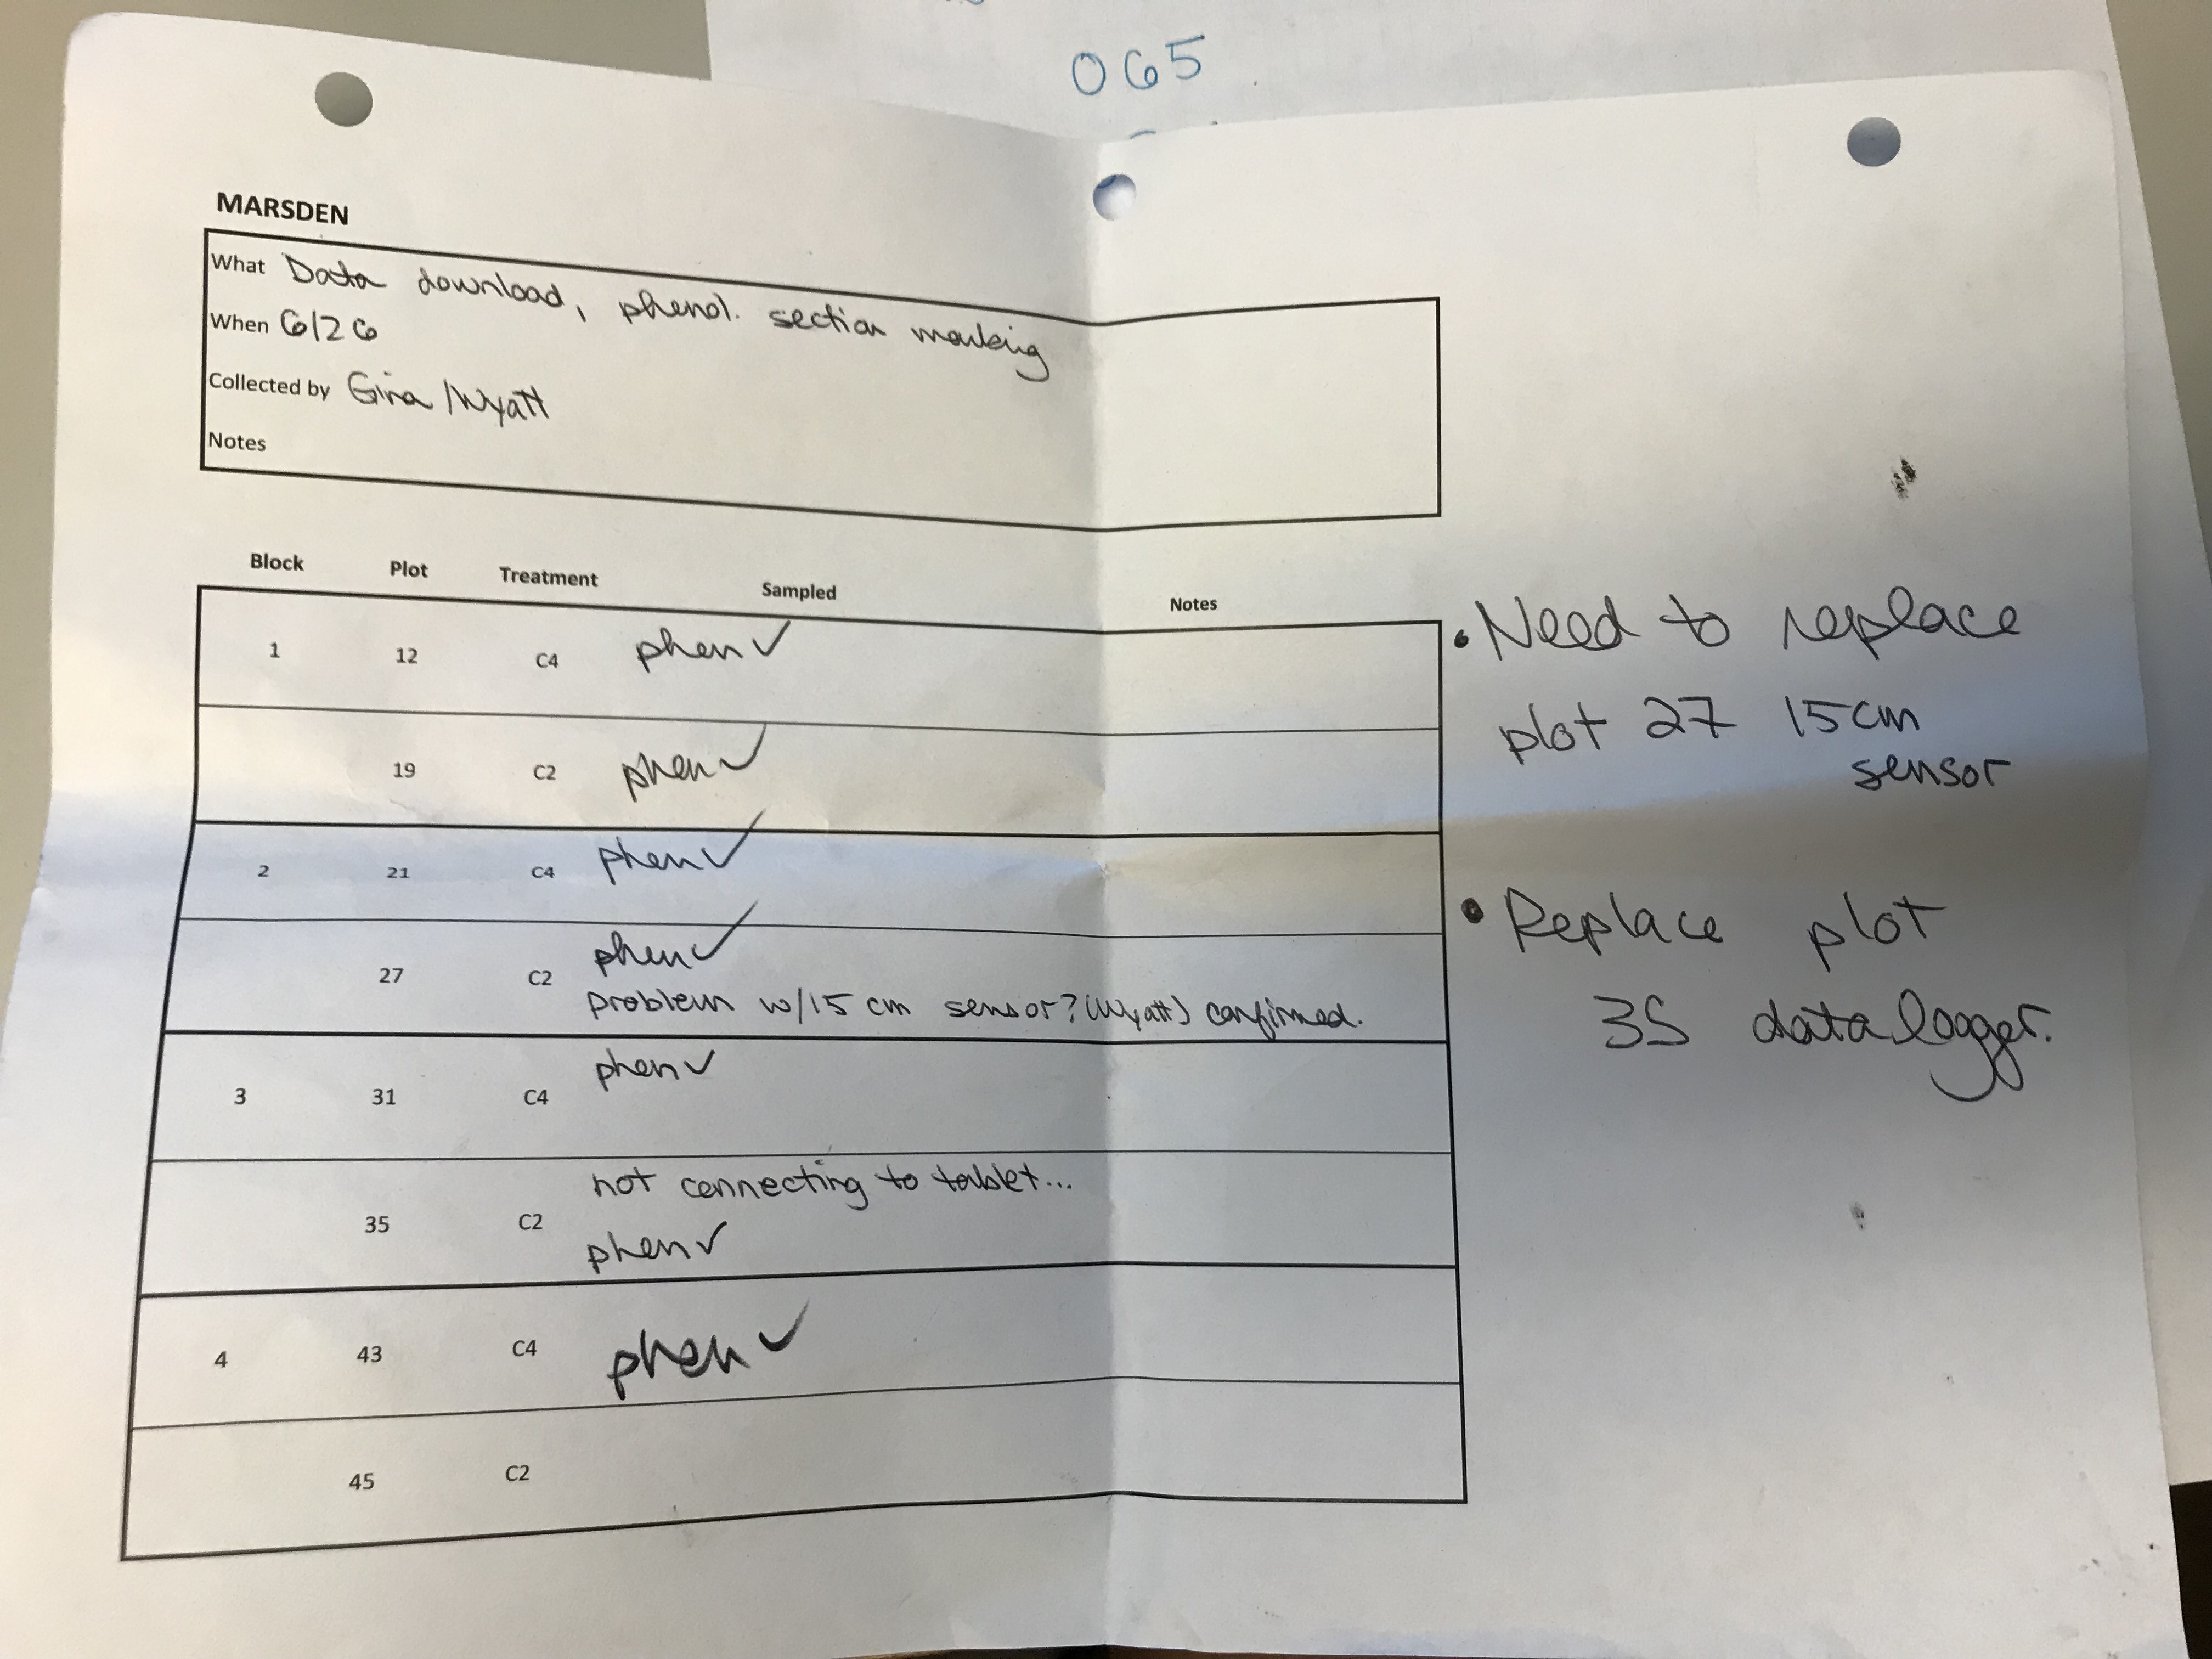 065
MARSDEN
What Data download, phenol. section marking
When 6/26
Collected by Gina/Wyatt
Notes
Block Plot Treatment Sampled Notes
1 12 C4 phen ✓
19 C2 phen ✓
2 21 C4 phen ✓
27 C2 phen ✓
problem w/15 cm sensor? (Wyatt) confirmed.
3 31 C4 phen ✓
not connecting to tablet...
35 C2
phen ✓
4 43 C4 phen ✓
45 C2
• Need to replace
plot 27 15cm
sensor
• Replace plot
35 datalogger.